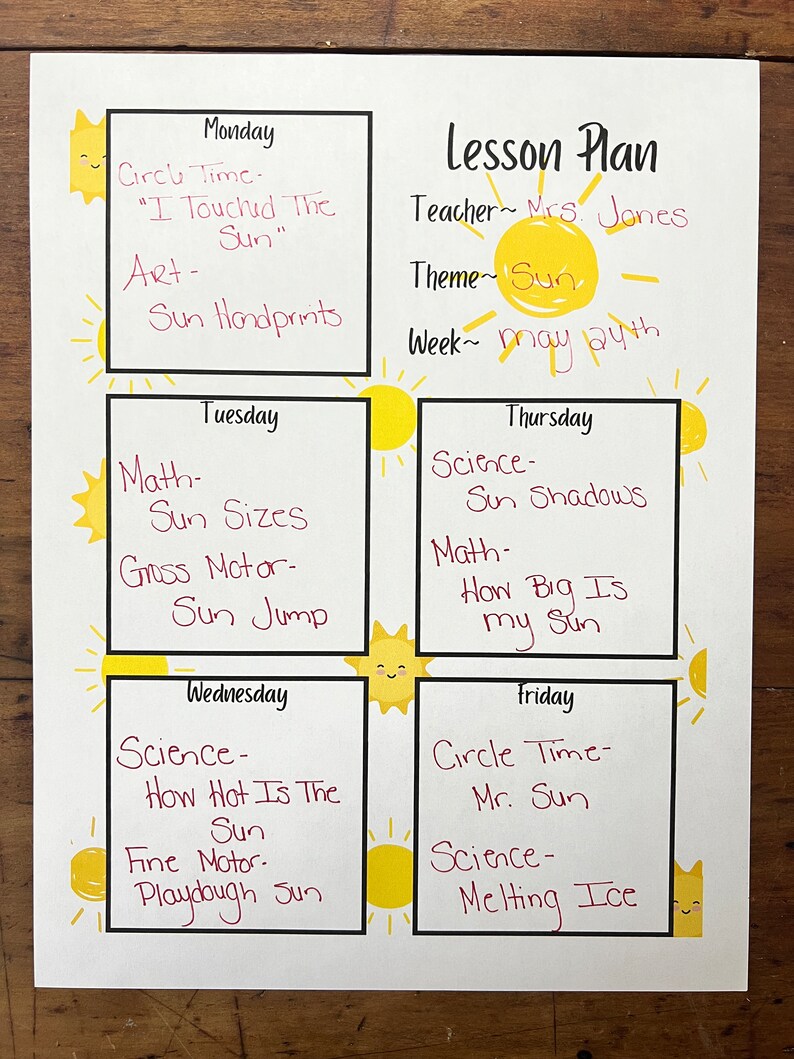 Lesson Plan
Teacher~ Mrs. Jones
Theme~ Sun
Week~ May 24th
Monday
Circle Time-
"I Touched The
Sun"
Art-
Sun Handprints
Tuesday
Math-
Sun Sizes
Gross Motor-
Sun Jump
Wednesday
Science-
How Hot Is The
Sun
Fine Motor-
Playdough Sun
Thursday
Science-
Sun Shadows
Math-
How Big Is
my Sun
Friday
Circle Time-
Mr. Sun
Science-
Melting Ice